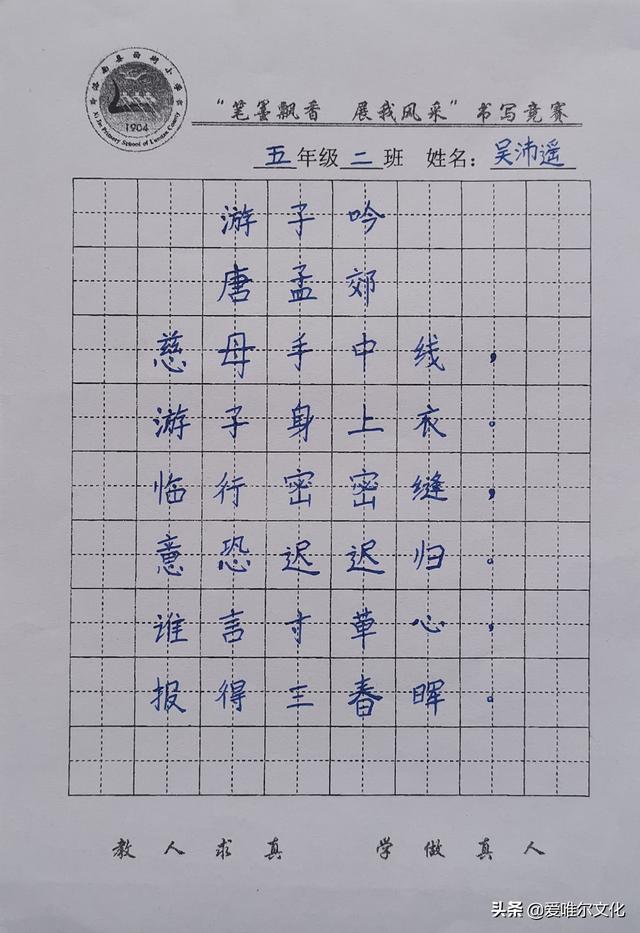 1904
Primary School of
County
“笔墨飘香 展我风采”书写竞赛
五年级二班 姓名：吴沛遥
游子吟
唐孟郊
慈母手中线，
游子身上衣。
临行密密缝，
意恐迟迟归。
谁言寸草心，
报得三春晖。
教人求真 学做真人
头条 @爱唯尔文化